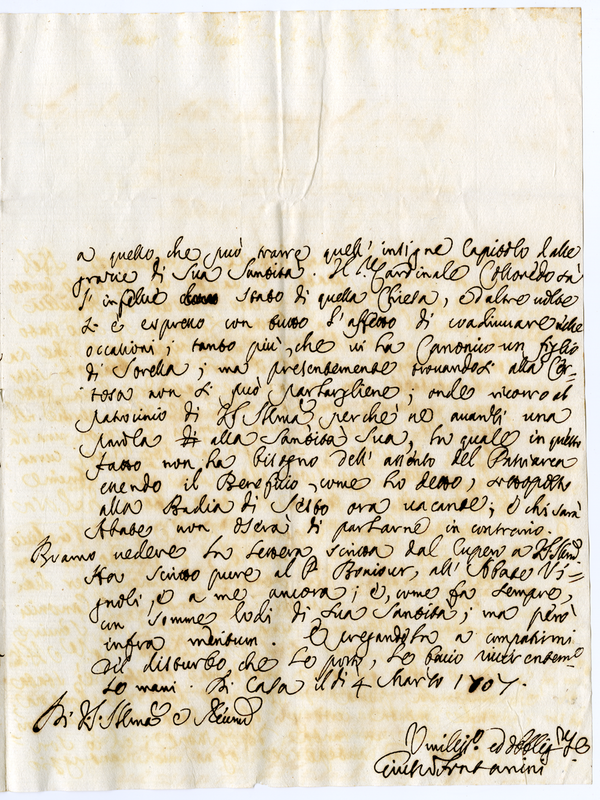 a quello che può trarre quell' insigne Capitolo dalle
grazie di Sua Santità. Il Sr Cardinale Colloredo sà
l' infelice stato di quella Chiesa, ed altre volte
si è espresso con tutto l'affetto di coadiuvare nelle
occasioni; tanto più, che vi ha Canonico un figlio
di Sorella; ma presentemente trovandosi alla Cer-
tosa non si può parlargliene; onde ricorro al
patrocinio di V.S. Illma, perchè ne avanzi una
parola alla Santità Sua, la quale in questo
fatto non ha bisogno dell' assenso del Patriarca
essendo il Beneficio, come ho detto, sottoposto
alla Badia di Sesto ora vacante; e chi sarà
Abate non oserà di parlarne in contrario.
Bramo vedere la lettera scritta dal Cupero a V.S. Illma.
Ha scritto pure al P. Bonjour, all' Abate Vi=
gnoli, e a me ancora; e, come fa sempre,
con somme lodi di Sua Santità; ma però
infra meritum. E pregandola a compatirmi
del disturbo, che le porto, le bacio riverentemte
le mani. Di Casa il dì 4 Marzo 1707.
Di V.S. Illma e Revma
Umiliss.o ed Obblig.mo Se
Giusto Fontanini